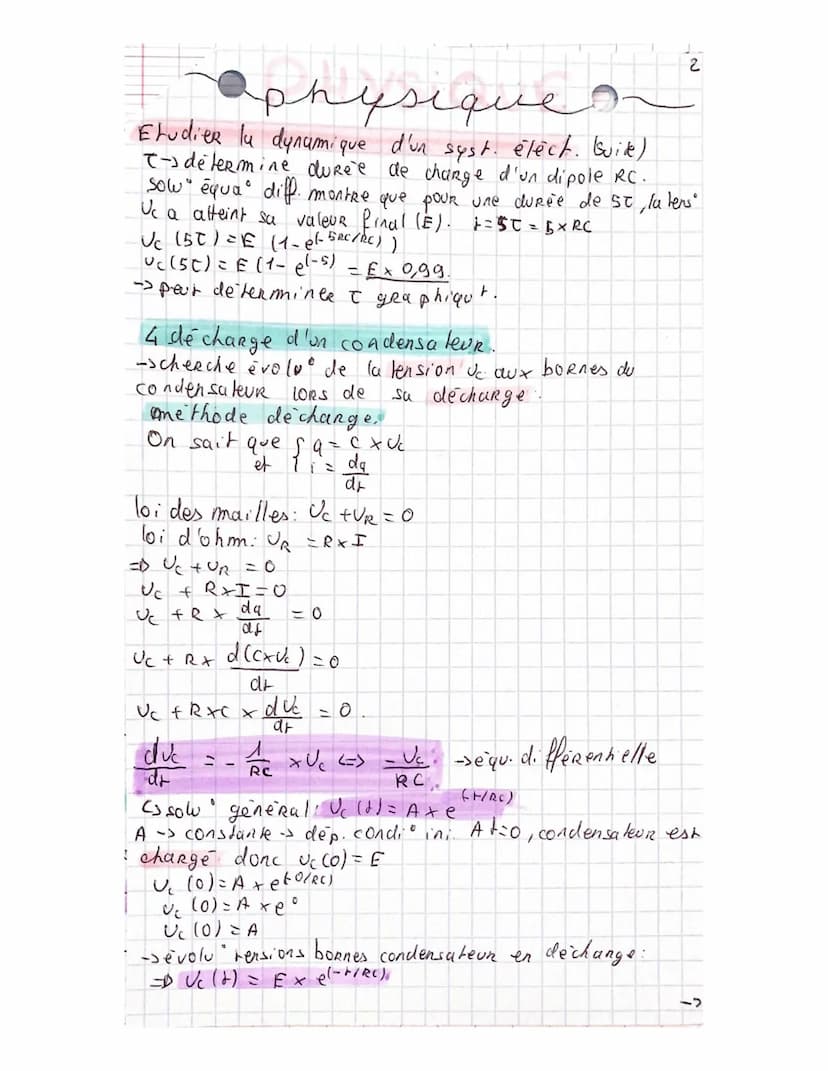 2
physique
Etudier la dynamique d'un syst. élect. (suite)
τ→ détermine durée de charge d'un dipole RC.
solu° équa° diff. montre que pour une durée de 5τ, la tens°
Uc a atteint sa valeur final (E). t=5τ = 5×RC
Uc (5τ) = E (1-e^(-5RC/RC))
Uc(5τ) = E (1- e^(-5) = E x 0,99.
→ peut déterminée τ graphiqut.
4 décharge d'un condensateur.
→ cherche évolu° de la tension Uc aux bornes du
condensateur lors de sa décharge.
méthode décharge.
On sait que { q = C × Uc
et { i = dq/dt
loi des mailles: Uc + UR = 0
loi d'ohm: UR = R×I
=> Uc + UR = 0
Uc + R×I = 0
Uc + R × dq/dt = 0
Uc + R× d(C×Uc)/dt = 0
Uc + R×C × dUc/dt = 0.
dUc/dt = - 1/RC ×Uc <=> -Uc/RC. → équ. différentielle
↳ solu° général: Uc(t) = A × e^(-t/RC)
A → constante → dép. condi° ini. A t=0, condensateur est
chargé donc Uc(0) = E
Uc (0) = A × e^(-0/RC)
Uc (0) = A × e^0
Uc (0) = A
→ évolu° tensions bornes condensateur en décharge:
=> Uc(t) = E × e^(-t/RC).
→